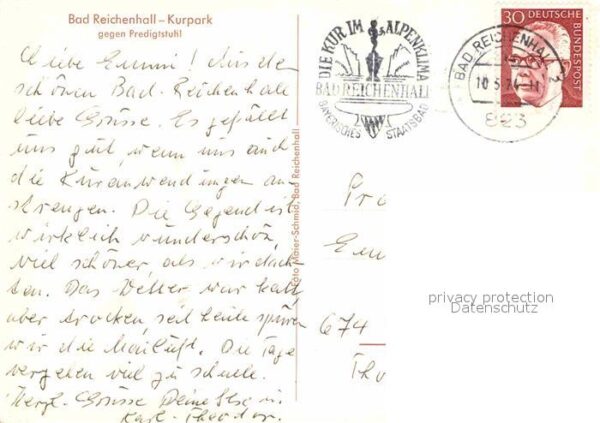 Bad Reichenhall – Kurpark
gegen Predigtstuhl
Liebe Emmi! Aus dem
schönen Bad-Reichenhall
liebe Grüsse. Es gefällt
uns gut, wenn uns auch
die Kuranwendungen an-
strengen. Die Gegend ist
wirklich wunderschön,
viel schöner, als wir dach-
ten. Das Wetter war kalt,
aber trocken, seit heute spüren
wir die Mailuft. Die Tage
vergehen viel zu schnell.
Herzl. Grüsse Deine Ilse u.
Karl-Theodor.
Foto Maier-Schmid, Bad Reichenhall
DIE KUR IM ALPENKLIMA
BAD REICHENHALL
BAYERISCHES STAATSBAD
BAD REICHENHALL 2
10.5.74
823
30 DEUTSCHE
BUNDESPOST
674
privacy protection
Datenschutz